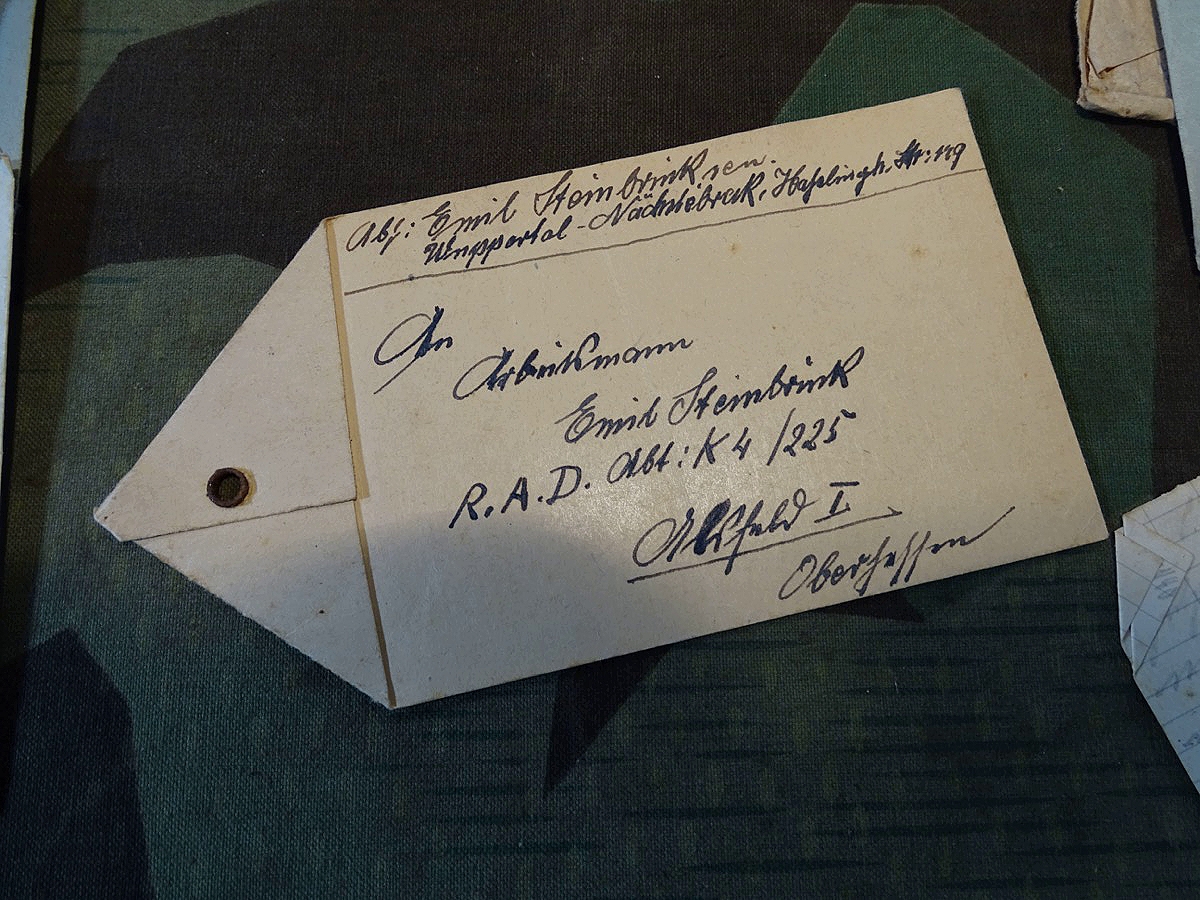 Abs: Emil Steinbrink sen.
Wuppertal-Nächstebreck, Haßlingh. Str: 119
An
Arbeitsmann
Emil Steinbrink
R.A.D. Abt: K 4 /225
Alsfeld I
Oberhessen